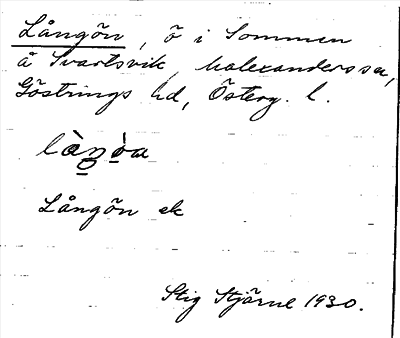 Långön, ö i Sommen
å Svartsvik, Malexanderssn,
Göstrings hd, Österg. l.
Långön ek
Stig Stjärne 1930.